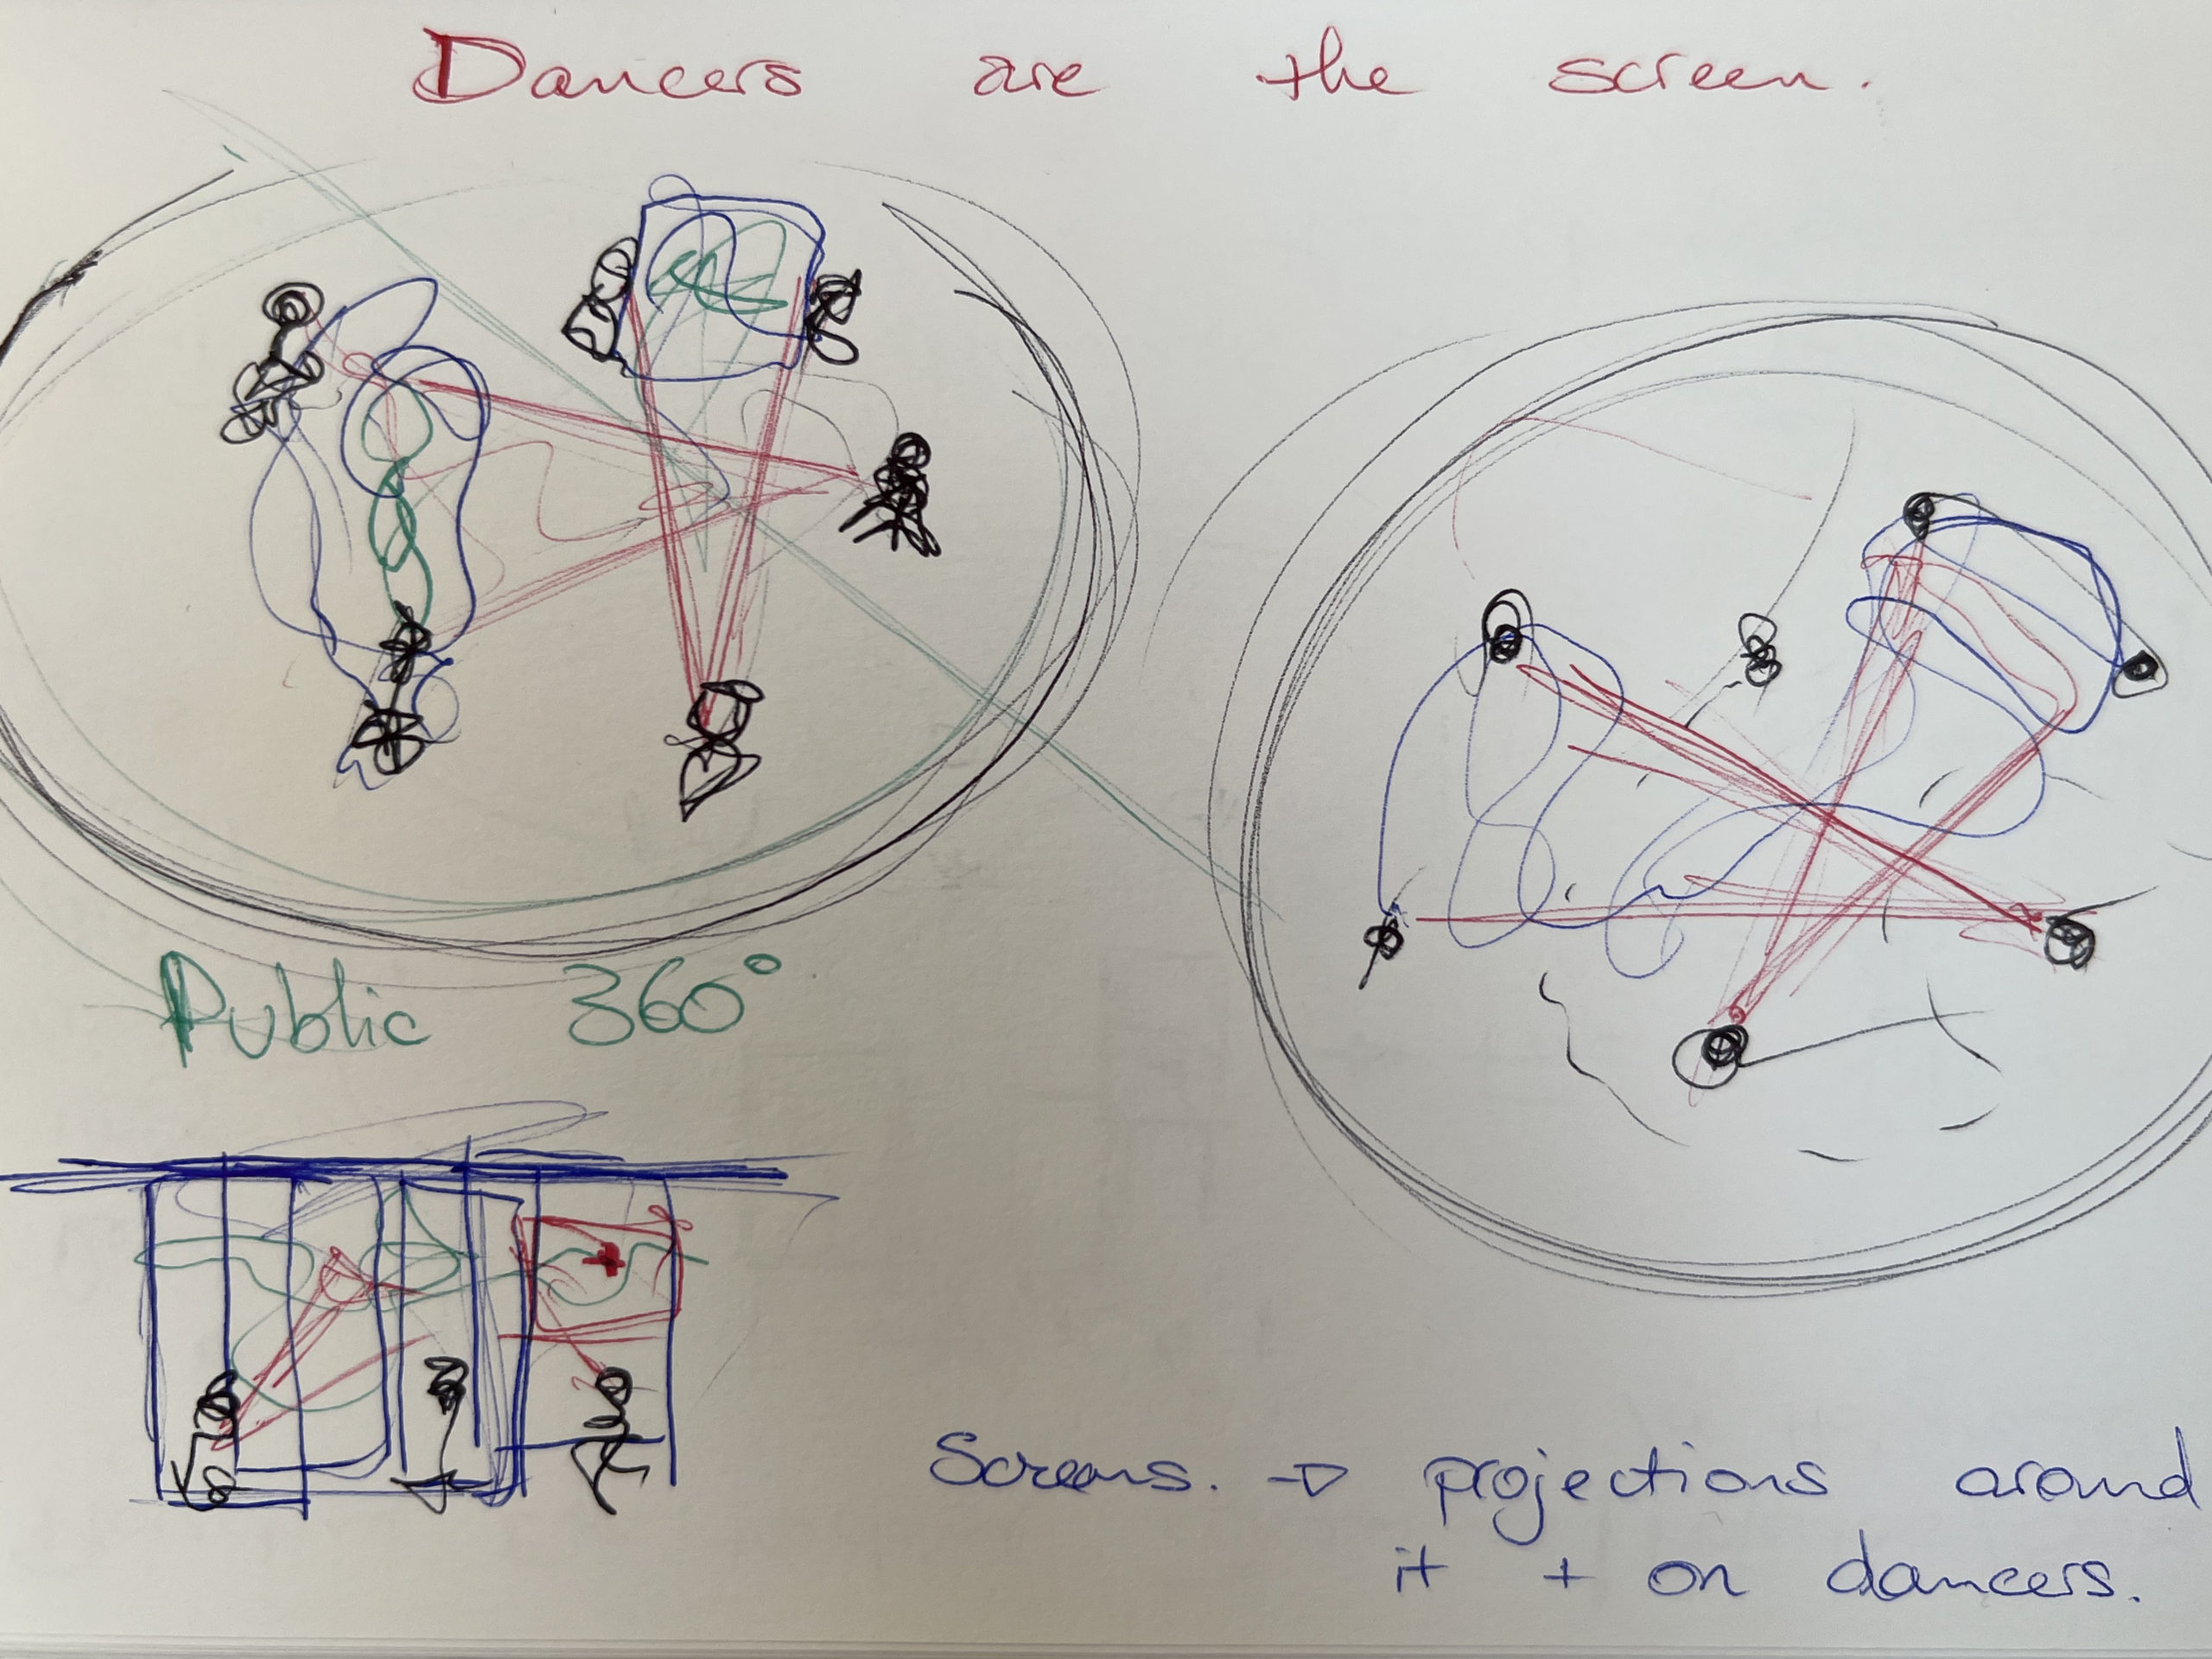 Dancers are the screen.
Public 360°
Screens. → projections around
it + on dancers.